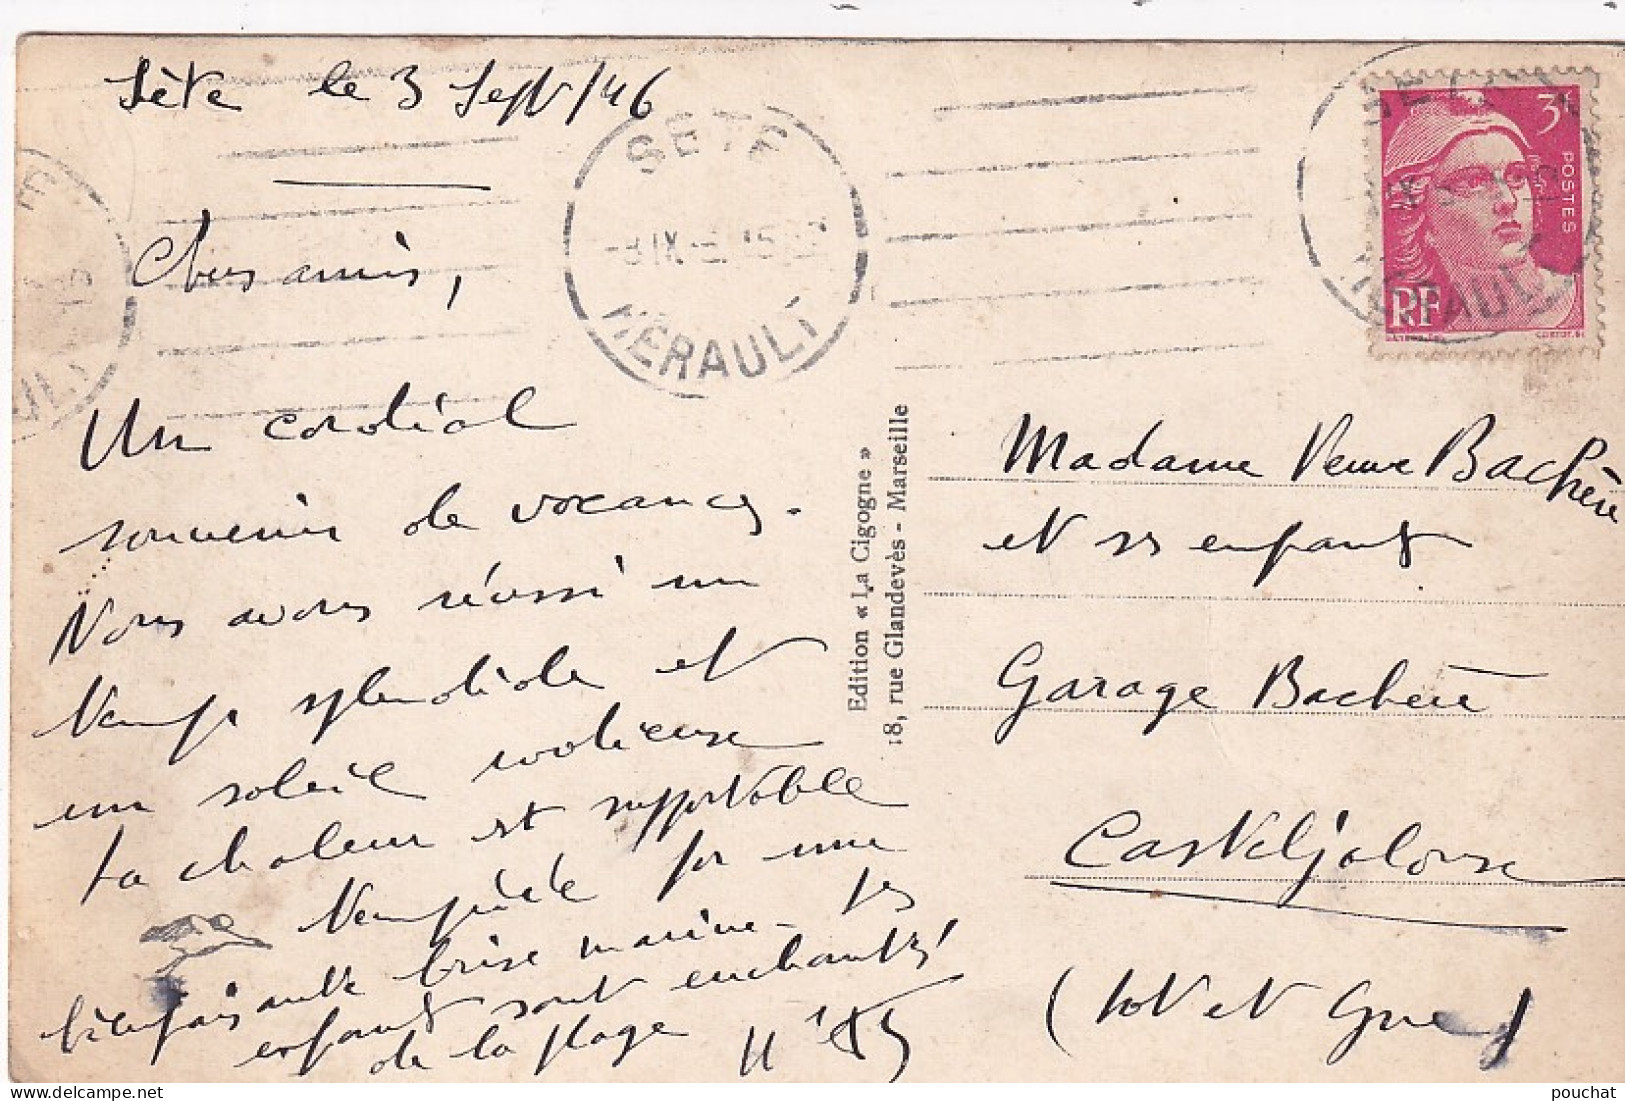 Sète le 3 Sept/46
SETE
HÉRAULT
3F
POSTES
RF
HÉRAULT
Chers amis,
Un cordial
souvenir de vacances.
Nous avons réussi un
temps splendide et
un soleil radieux
La chaleur est supportable
tempérée par une
bienfaisante brise marine - les
enfants sont enchantés
de la plage
Edition « La Cigogne »
18, rue Glandevès - Marseille
Madame Veuve Bachère
et ses enfants
Garage Bachère
Casteljaloux
(Lot et Gne)
pouchat